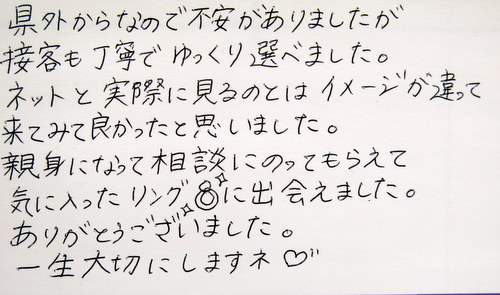 県外からなので不安がありましたが
接客も丁寧でゆっくり選べました。
ネットと実際に見るのとはイメージが違って
来てみて良かったと思いました。
親身になって相談にのってもらえて
気に入ったリング💍に出会えました。
ありがとうございました。
一生大切にしますネ♡